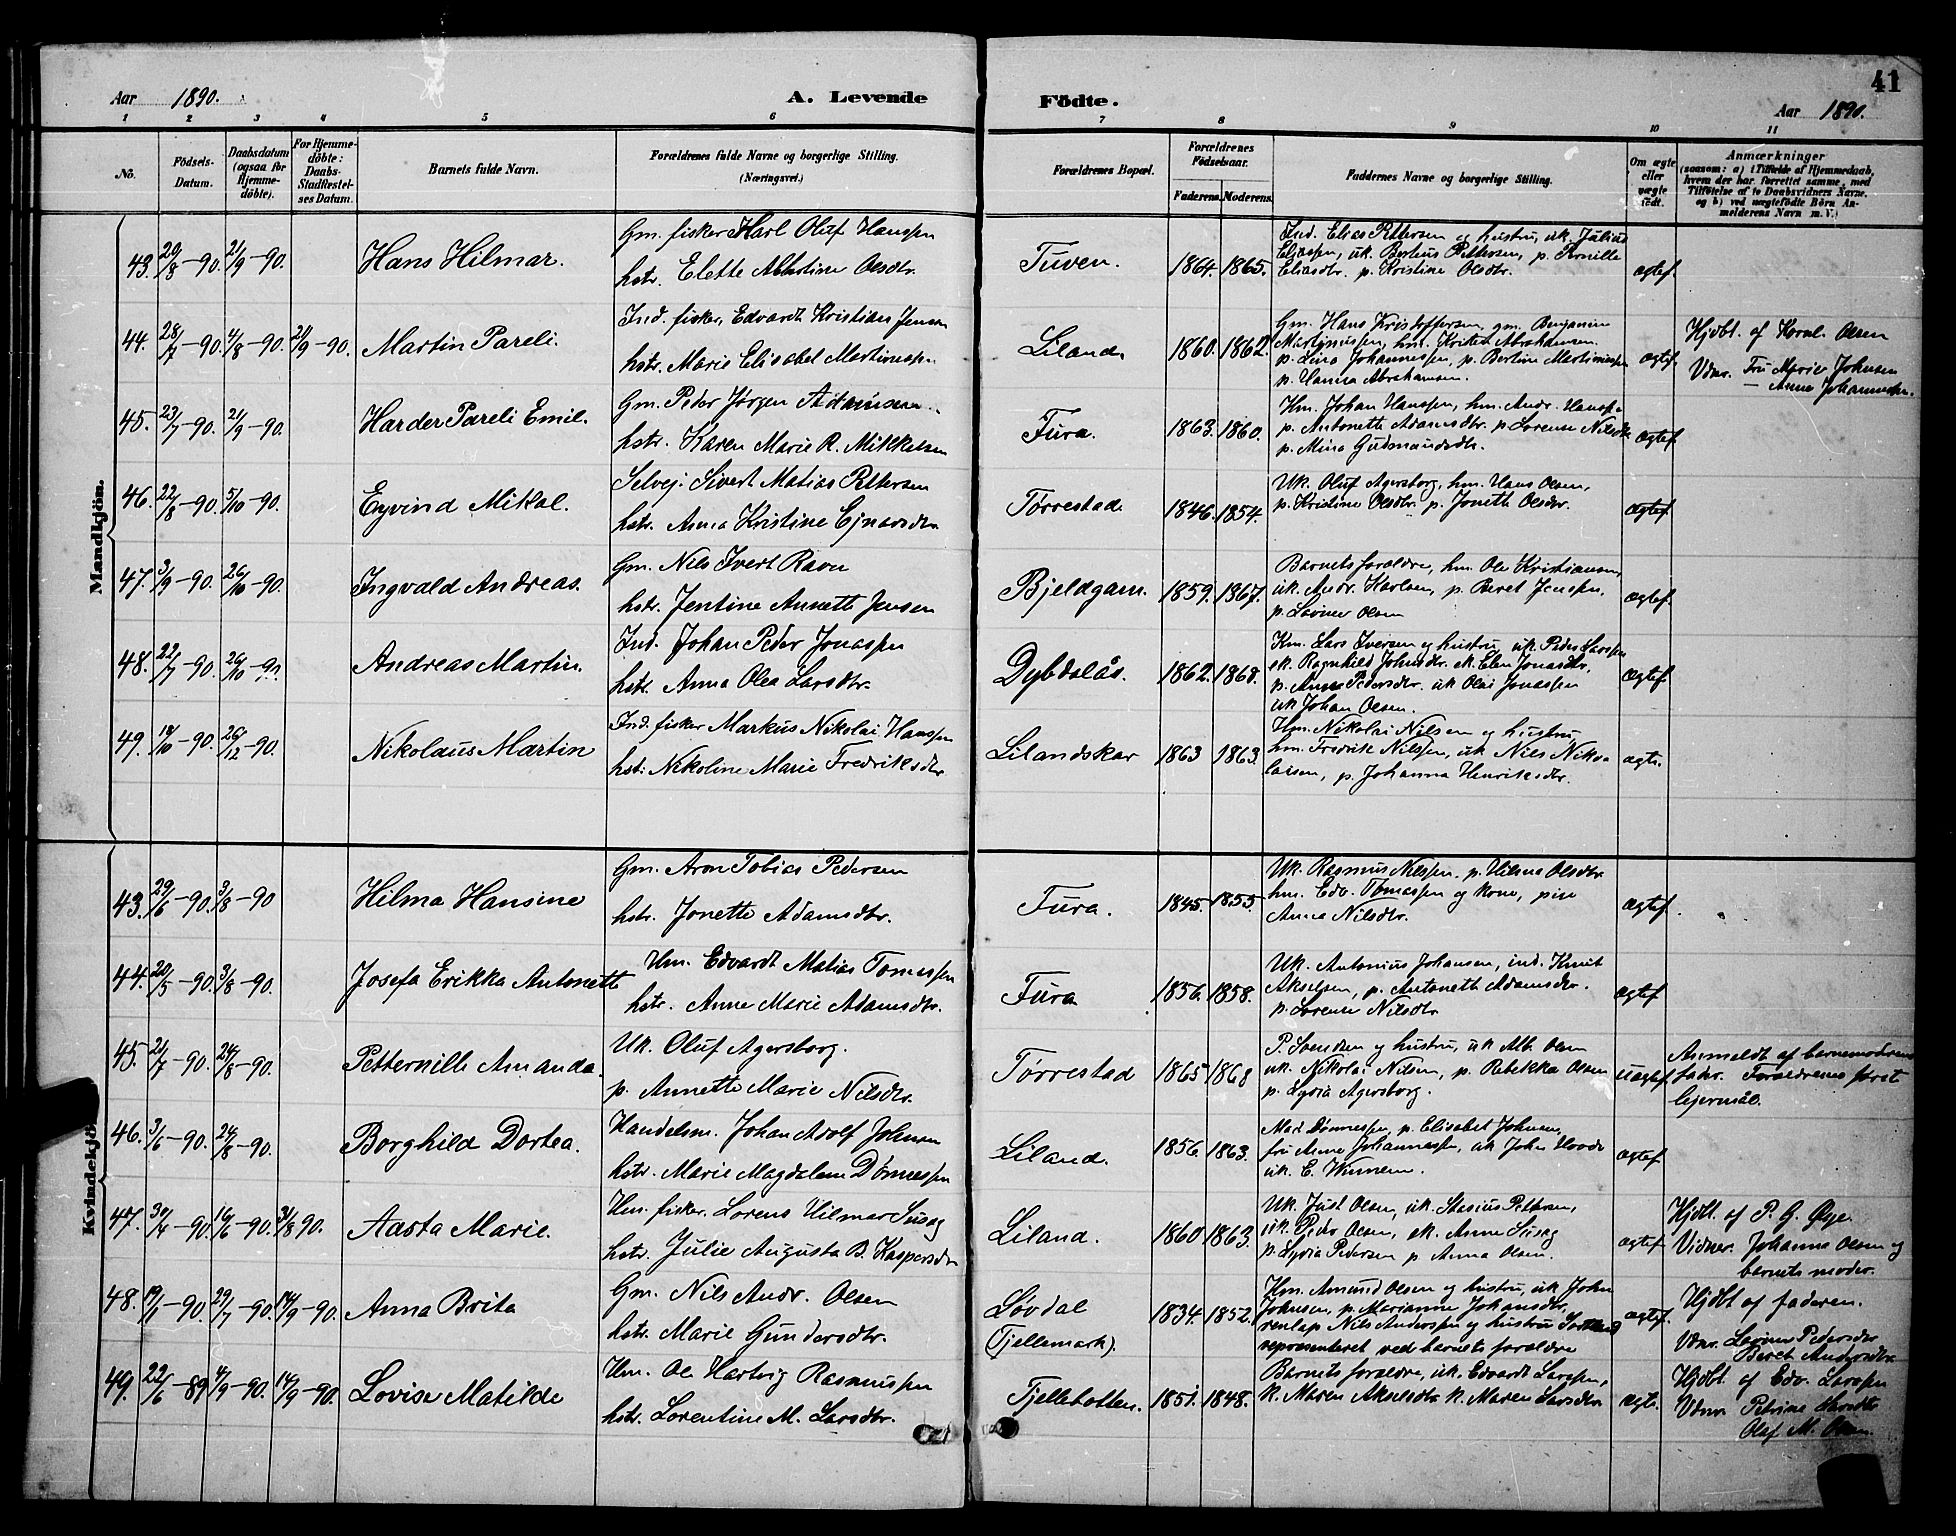 41
Aar 1890. A. Levende Födte. Aar 1890.
1 2 3 4 5 6 7 8 9 10 11
No.
Födsels-
Datum.
Daabsdatum
(ogsaa for
Hjemme-
döbte).
For Hjemme-
döbte:
Daabs-
Stadfæstel-
ses Datum.
Barnets fulde Navn.
Forældrenes fulde Navne og borgerlige Stilling.
(Næringsvei.)
Forældrenes Bopæl.
Forældrenes
Födselsaar.
Faderens. Moderens.
Faddernes Navne og borgerlige Stilling.
Om ægte
eller
uægte
födt.
Anmærkninger
(saasom: a) i Tilfælde af Hjemmedaab,
hvem der har forrettet samme, med
Tilföielse af to Daabsvidners Navne.
og b) ved uægtefödte Börn An-
melderens Navn m. V.)
Mandkjön.
43. 20/8-90. 21/9-90. Hans Hilmar.
Gm. fisker Karl Oluf Hanssen
hstr. Elette Albertine Olsdtr.
Tuven. 1864. 1865.
Ind. Elias Pettersen og hustru, uk. Julius
Eliassen, uk. Bertius Pettersen, p. Pernille
Eliasdtr. p. Kristine Olsdtr.
ægtef.
44. 28/7-90. 4/8-90. 21/9-90. Martin Pareli.
Ind. fisker, Edvardt Kristian Jensen
hstr. Marie Elisabet Martinussn.
Liland. 1860. 1862.
Gm. Hans Kristoffersen, gm. Benjamin
Martinussen, hm. Kristen Abrahamsen.
p. Lina Johannessen, p. Bertine Martinussen
p. Hanna Abrahamsen.
ægtef.
Hjdbt. af Kornl. Olsen
Vdnr. Fru Marie Johnsen
— Anne Johannessn.
45. 23/7-90. 21/9-90. Harder Pareli Emil.
Gm. Peder Jørgen Adamsen.
hstr. Karen Marie R. Mikkelsen
Fura. 1863. 1860.
Hm. Johan Hanssen, hm. Andr. Hanssn
p. Antonette Adamsdtr. p. Lorense Nilsdtr
p. Mina Gudmundsdtr.
ægtef.
46. 22/8-90. 5/10-90. Eyvind Mikal.
Selvej. Sivert Matias Pettersen
hstr. Anna Kristine Ejnarsdtr
Tørrestad. 1846. 1854.
Uk. Oluf Agersborg, hm. Hans Olsen,
p. Kristine Olsdtr. p. Jonette Olsdtr.
ægtef.
47. 3/9-90. 26/10-90. Ingvald Andreas.
Gm. Nils Ivert Ravn
hstr. Jentine Annette Jensen
Bjeldgam. 1859. 1867.
Barnets forældre, hm. Ole Kristiansen,
uk. Andr. Karlsen, p. Beret Jenssen,
p. Lovise Olsen
ægtef.
48. 22/7-90. 26/10-90. Andreas Martin.
Ind. Johan Peder Jonassen
hstr. Anna Olea Larsdtr.
Dybdalås. 1862. 1868.
Km. Lars Iversen og hustru, uk. Peder Larssen
ek. Ragnhild Johnsdtr. ek. Elen Jonasdtr.
p. Anna Pedersdtr. uk Olai Jonassen
uk Johan Olsen.
ægtef.
49. 14/10-90. 26/12-90. Nikolaus Martin
Ind. fisker Markus Nikolai Hanssen
hstr. Nikoline Marie Fredriksdtr
Lilandskar 1863 1863.
Hm. Nikolai Nilsen og hustru
hm. Fredrik Nilssen, uk Nils Nikso
laisen, p. Johanna Henriksdtr.
ægte.
Kvindekjö
43. 29/6-90. 3/8-90 Hilma Hansine
Gm. Aron Tobias Pedersen
hstr. Jonette Adamsdtr.
Fura. 1845. 1855.
Uk. Rasmus Nilssen. p. Hilma Olsdtr.
hm. Edv. Tomassen og kone, pike
Anna Nilsdtr.
ægtef.
44. 20/5-90. 3/8-90. Josefa Erikka Antonette
Hm. Edvardt Matias Tomassen
hstr. Anne Marie Adamsdtr.
Fura 1856. 1858.
Uk. Antonius Johansen, ind. Knut
Akselsen, p. Antonette Adamsdtr.
p. Lorense Nilsdtr
ægtef
45. 21/7-90. 24/8-90. Petternille Amanda.
Uk. Oluf Agersborg.
p. Annette Marie Nilsdtr.
Tørrestad 1865 1868
P. Svendsen og hustru, uk Alb. Olsen
uk. Nikolai Nilsen, p. Rebekka Olsen
p. Lydia Agersborg.
uægtef
Anmeldt af barnemoderens
Forældrenes første
lejermål.
46. 3/6-90. 24/8-90. Borghild Dortea.
Handelsm. Johan Adolf Johnsen
hstr. Marie Magdalena Dønnessen
Liland. 1856. 1863.
Mad Dønnessen, p. Elisabet Johnsen,
fru Anne Johannessen, uk John
uk. E. Winnem.
ægtef
47. 30/4-90. 16/6-90. 31/8 90. Aasta Marie.
Hm. fisker. Lorens Hilmar Susag
hstr. Julie Augusta B. Kaspersdtr
Liland. 1860 1863.
Uk. Just Olsen, uk. Stasius Pettersen,
uk. Peder Olsen, ek. Anne Susag
p. Lydia Pedersen p. Anna Olsen.
ægtef
Hjdbt. af P. G. Øye.
Vidner. Johanna Olsen og
barnets moder.
48. 19/1-90. 29/7-90. 14/9-90. Anna Brita
Gm. Nils Andr. Olsen
hstr. Marie Gundersdtr.
Løvdal
(Tjellemark). 1834. 1852.
Hm. Amund Olsen og hustru, uk John
Johnsen, p. Marianne Johansdtr,
renlap Nils Anderssen og hustru
representeret ved barnets forældre
ægtef.
Hjdbt af faderen.
Vdnr. Lovise Pedersdtr
Beret Andersdtr
49. 22/6-89 4/9-90. 14/9-90. Lovise Matilde
Hm. Ole Hartvig Rasmussen
hstr. Lorentine M. Larsdtr.
Tjellebotten. 1851. 1848.
Barnets forældre, uk. Edvardt Larssen,
k. Maren Akselsdtr k. Maren Larsdtr.
ægte.
Hjdbt af Edv. Larssen
Vdnr. Petrine Larsdtr
Olaf M. Olsen.